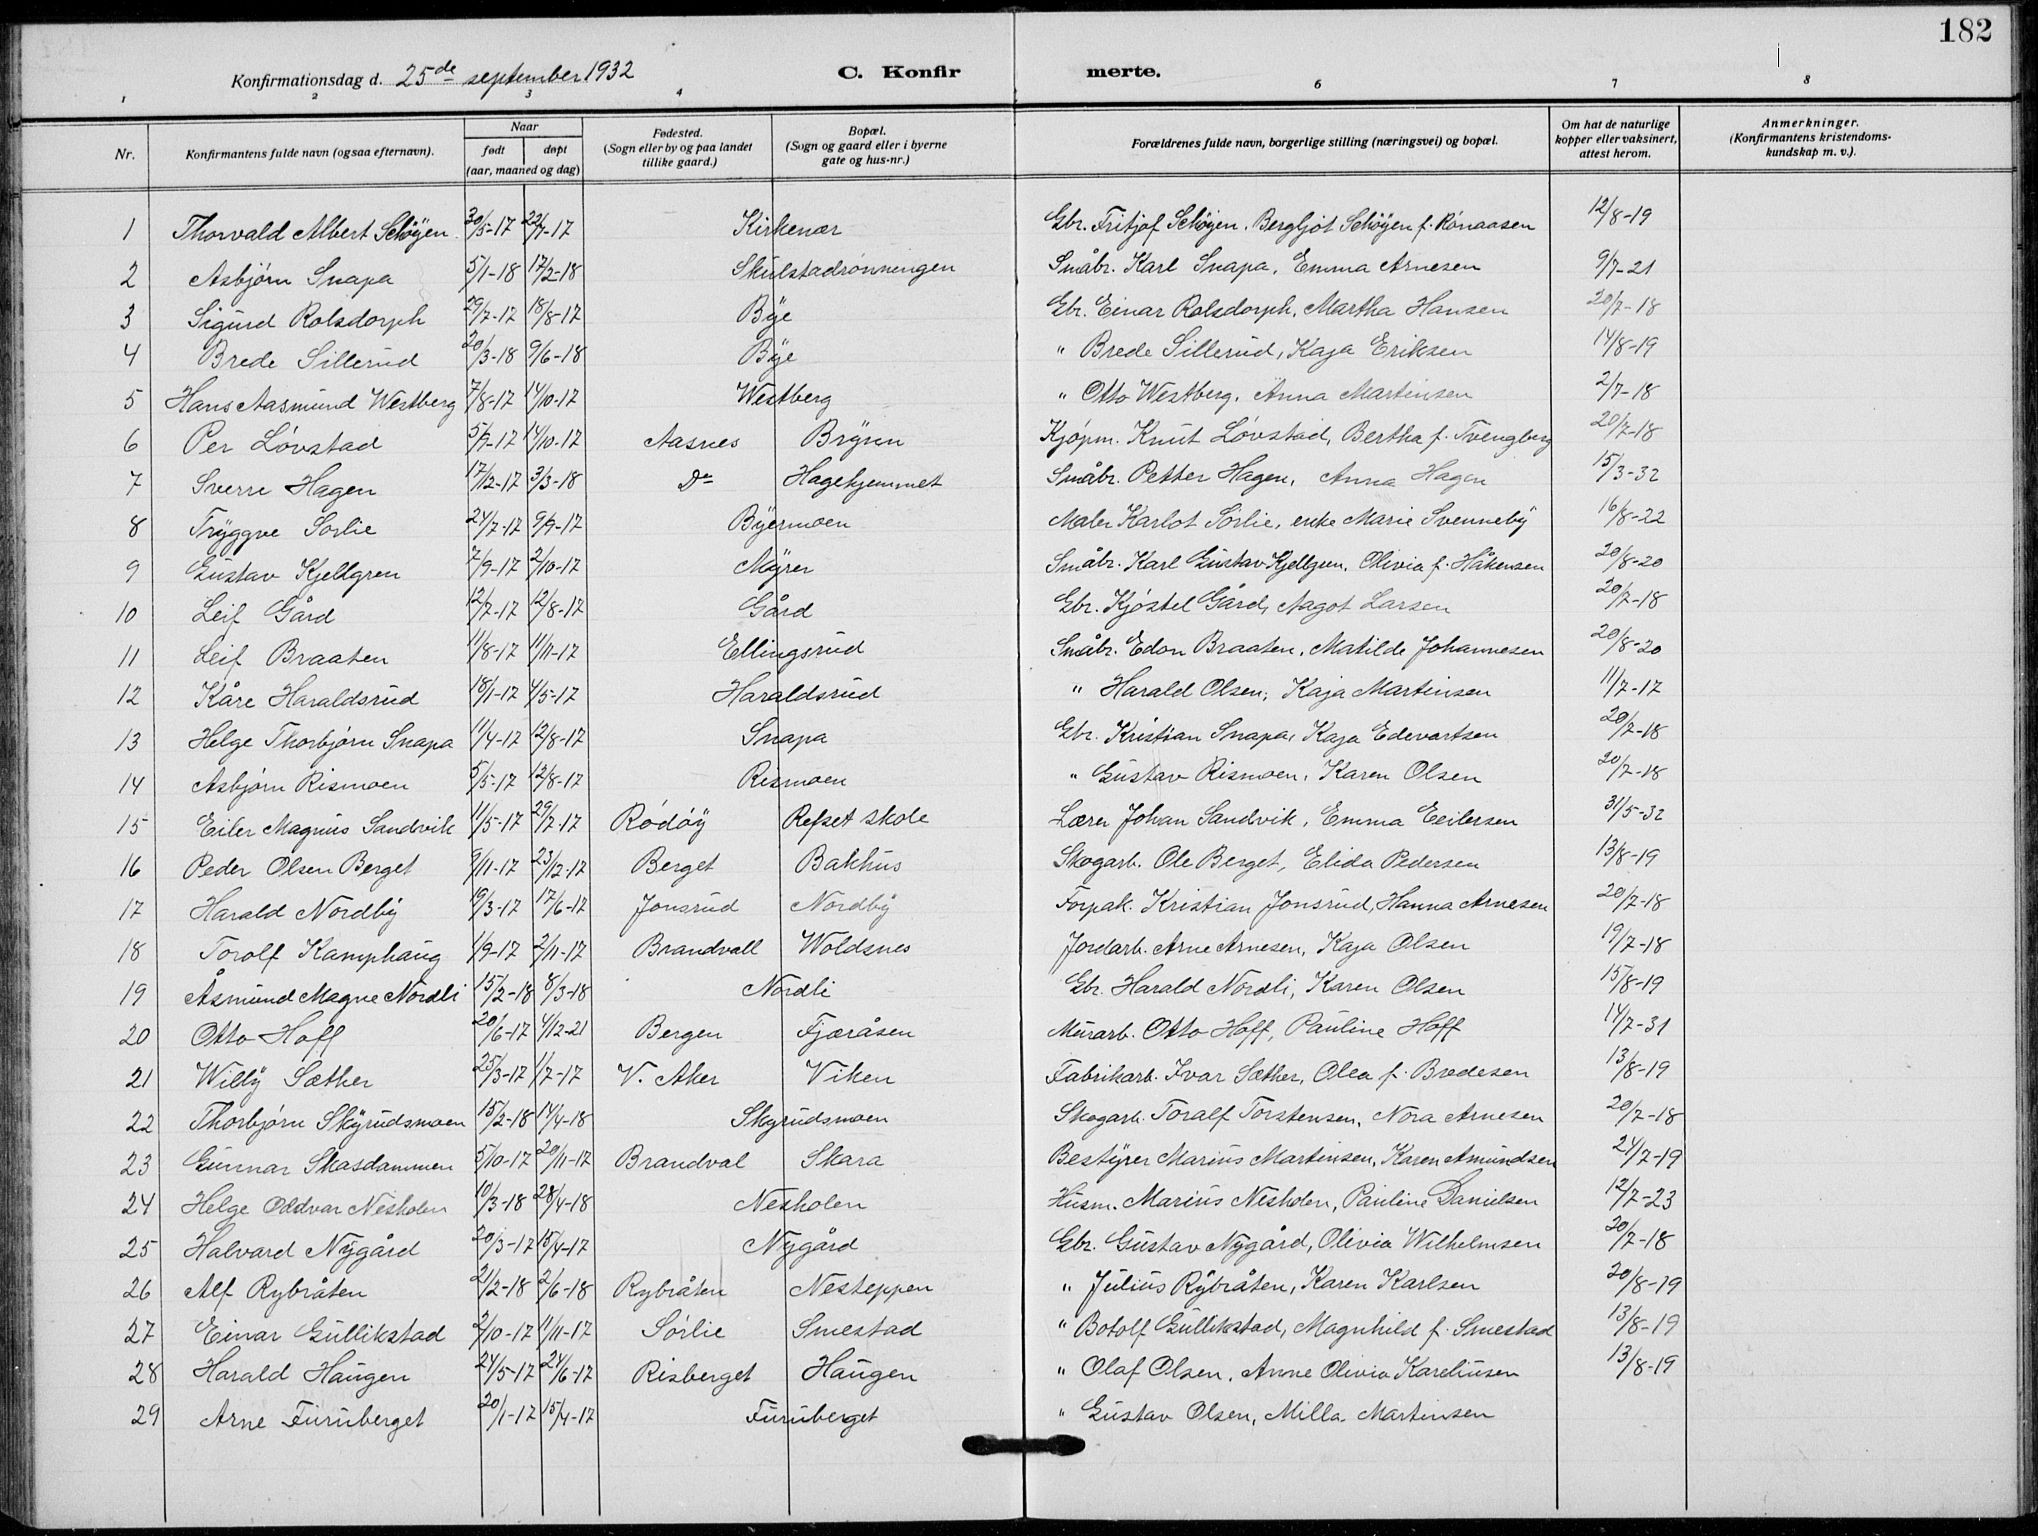 182
Konfirmationsdag d. 25de september 1932 C. Konfirmerte.
1 2 3 4 6 7 8
Nr. Konfirmantens fulde navn (ogsaa efternavn). Naar født døpt (aar, maaned og dag) Fødested. (Sogn eller by og paa landet tillike gaard.) Bopæl. (Sogn og gaard eller i byerne gate og hus-nr.) Forældrenes fulde navn, borgerlige stilling (næringsvei) og bopæl. Om hat de naturlige kopper eller vaksinert, attest herom. Anmerkninger. (Konfirmantens kristendoms-kundskap m. v.).
1 Thorvald Albert Schøyen 30/5-17 22/7-17 Kirkenær Gbr. Fritjof Schøyen. Bergljot Schøyen f. Rønaasen 12/8-19
2 Asbjørn Snapa 5/1-18 17/2-18 Skulstadrønnengen Småbr. Karl Snapa, Emma Arnesen 9/7-21
3 Sigurd Rolsdorph 29/7-17 18/8-17 Bye Gbr. Einar Rolsdorph, Martha Hansen 20/7-18
4 Brede Sillerud 20/3-18 9/6-18 Bye " Brede Sillerud, Kaja Eriksen 14/8-19
5 Hans Aasmund Westberg 7/8-17 14/10-17 Westberg " Otto Westberg, Anna Martinsen 2/7-18
6 Per Løvstad 5/9-17 14/10-17 Aasnes Bryna Kjøpm. Knut Løvstad, Bertha f. Tvengberg 20/7-18
7 Sverre Hagen 17/12-17 3/3-18 Do Hagehjemmet Småbr. Petter Hagen, Anna Hagen 15/3-32
8 Tryggve Sørlie 24/7-17 9/9-17 Byermoen Maler Karlot Sørlie, enke Marie Svenneby 16/8-22
9 Gustav Kjellgren 7/9-17 2/10-17 Myrer Småbr. Karl Gustav Kjellgren, Olivia f. Håkensen 20/8-20
10 Leif Gård 12/7-17 12/8-17 Gård Gbr. Kjøstel Gård, Aagot Larsen 20/7-18
11 Leif Braaten 11/8-17 11/11-17 Ellingsrud Småbr. Edon Braaten, Matilde Johannesen 20/8-20
12 Kåre Haraldsrud 18/1-17 4/5-17 Haraldsrud " Harald Olsen, Kaja Martinsen 11/7-17
13 Helge Thorbjørn Snapa 11/4-17 12/8-17 Snapa Gbr. Kristian Snapa, Kaja Edevartsen 20/7-18
14 Asbjørn Rismoen 5/5-17 12/8-17 Rismoen " Gustav Rismoen, Karen Olsen 20/7-18
15 Eiler Magnus Sandvik 11/5-17 29/7-17 Rødøy Refset skole Lærer Johan Sandvik, Emma Eeilersen 31/5-32
16 Peder Olsen Berget 9/11-17 23/12-17 Berget Bakhus Skogarb. Ole Berget, Elida Pedersen 13/8-19
17 Harald Nordby 19/3-17 17/6-17 Jonsrud Nordby Forpak. Kristian Jonsrud, Hanna Arnesen 20/7-18
18 Torolf Kamphaug 1/9-17 2/11-17 Brandvall Woldsnes Jordarb. Arne Arnesen, Kaja Olsen 19/7-18
19 Åsmund Magne Nordli 15/2-18 8/3-18 Nordli Gbr. Harald Nordli, Karen Olsen 15/8-19
20 Otto Hoff 20/6-17 4/12-21 Bergen Fjæråsen Murarb. Otto Hoff, Pauline Hoff 14/7-31
21 Willy Sæther 25/3-17 1/7-17 V. Aker Viken Fabrikarb. Ivar Sæther, Olea f. Bredesen 13/8-19
22 Thorbjørn Skyrudsmoen 15/2-18 14/4-18 Skyrudsmoen Skogarb. Toralf Torstensen, Nora Arnesen 20/7-18
23 Gunnar Skasdammen 5/10-17 20/11-17 Brandval Skara Bestyrer Marius Martinsen, Karen Amundsen 24/7-19
24 Helge Oddvar Nesholen 10/3-18 28/4-18 Nesholen Husm. Marius Nesholen, Pauline Danielsen 12/7-23
25 Halvard Nygård 20/3-17 15/4-17 Nygård Gbr. Gustav Nygård, Olivia Wilhelmsen 20/7-18
26 Alf Rybråten 21/2-18 2/6-18 Rybråten Nesteppen " Julius Rybråten, Karen Karlsen 20/8-19
27 Einar Gullikstad 2/10-17 11/11-17 Sørlie Smestad " Botolf Gullikstad, Magnhild f. Smestad 13/8-19
28 Harald Haugen 24/5-17 24/6-17 Risberget Haugen " Olaf Olsen, Anne Olivia Kareliusen 13/8-19
29 Arne Furuberget 20/1-17 15/4-17 Furuberget " Gustav Olsen, Milla Martinsen